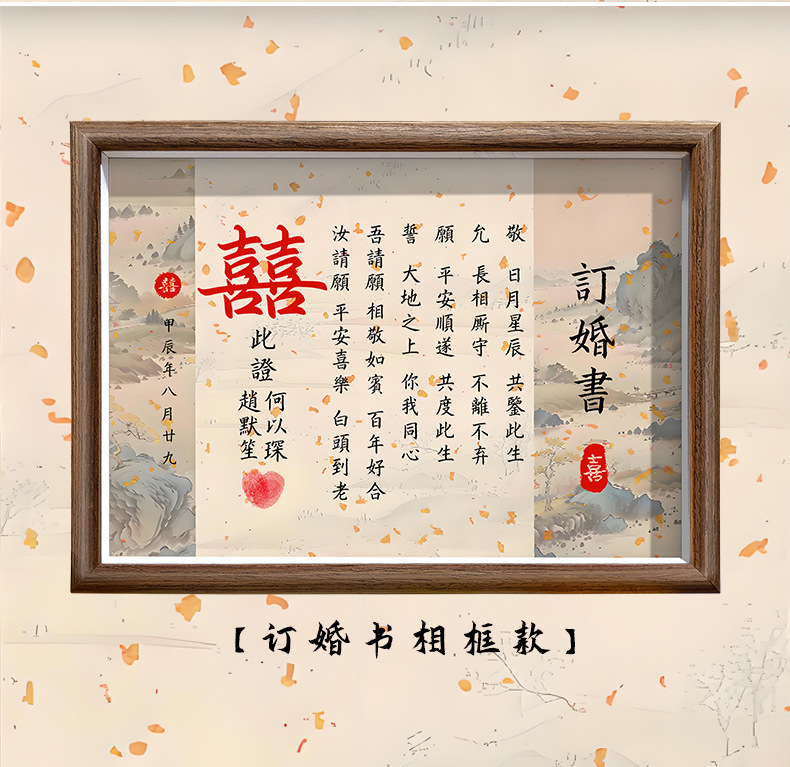 訂婚書
喜
敬 日月星辰 共鑒此生
允 長相厮守 不離不弃
願 平安順遂 共度此生
誓 大地之上 你我同心
吾請願 相敬如賓 百年好合
汝請願 平安喜樂 白頭到老
囍
此證
何以琛
趙默笙
囍
甲辰年八月廿九
【订婚书相框款】